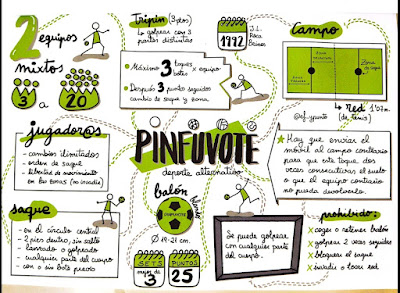 2 equipos
mixtos
3 a 20
Tripin (3 ptos)
Lo golpean con 3
partes distintas
Máximo 3 toques x equipo
botes
Después 3 punto seguidos
cambio de saque y zona.
1992
J.L.
Roca
Baines
Campo
Zona de
saque
red 1'07m.
(de tenis)
jugador@s
- cambios ilimitados
- orden de saque
- libertad de movimiento
en las zonas (no invadir)
PINFUVOTE
deporte alternativo
Hay que enviar el
móvil al campo contrario
para que este toque dos
veces consecutivas el suelo
o que el equipo contrario
no pueda devolverlo.
saque
- en el círculo central
- 2 pies dentro, sin salto
- lanzado o golpeado
- cualquier parte del cuerpo
- con o sin bote previo
balón
blando
PINFUVOTE
Ø 19-21 cm.
SETS PUNTOS
mejor de
3 25
Se puede golpear
con cualquier parte
del cuerpo.
prohibido:
x coger o retener balón
x golpear 2 veces seguidas
x bloquear el saque
x invadir o tocar red